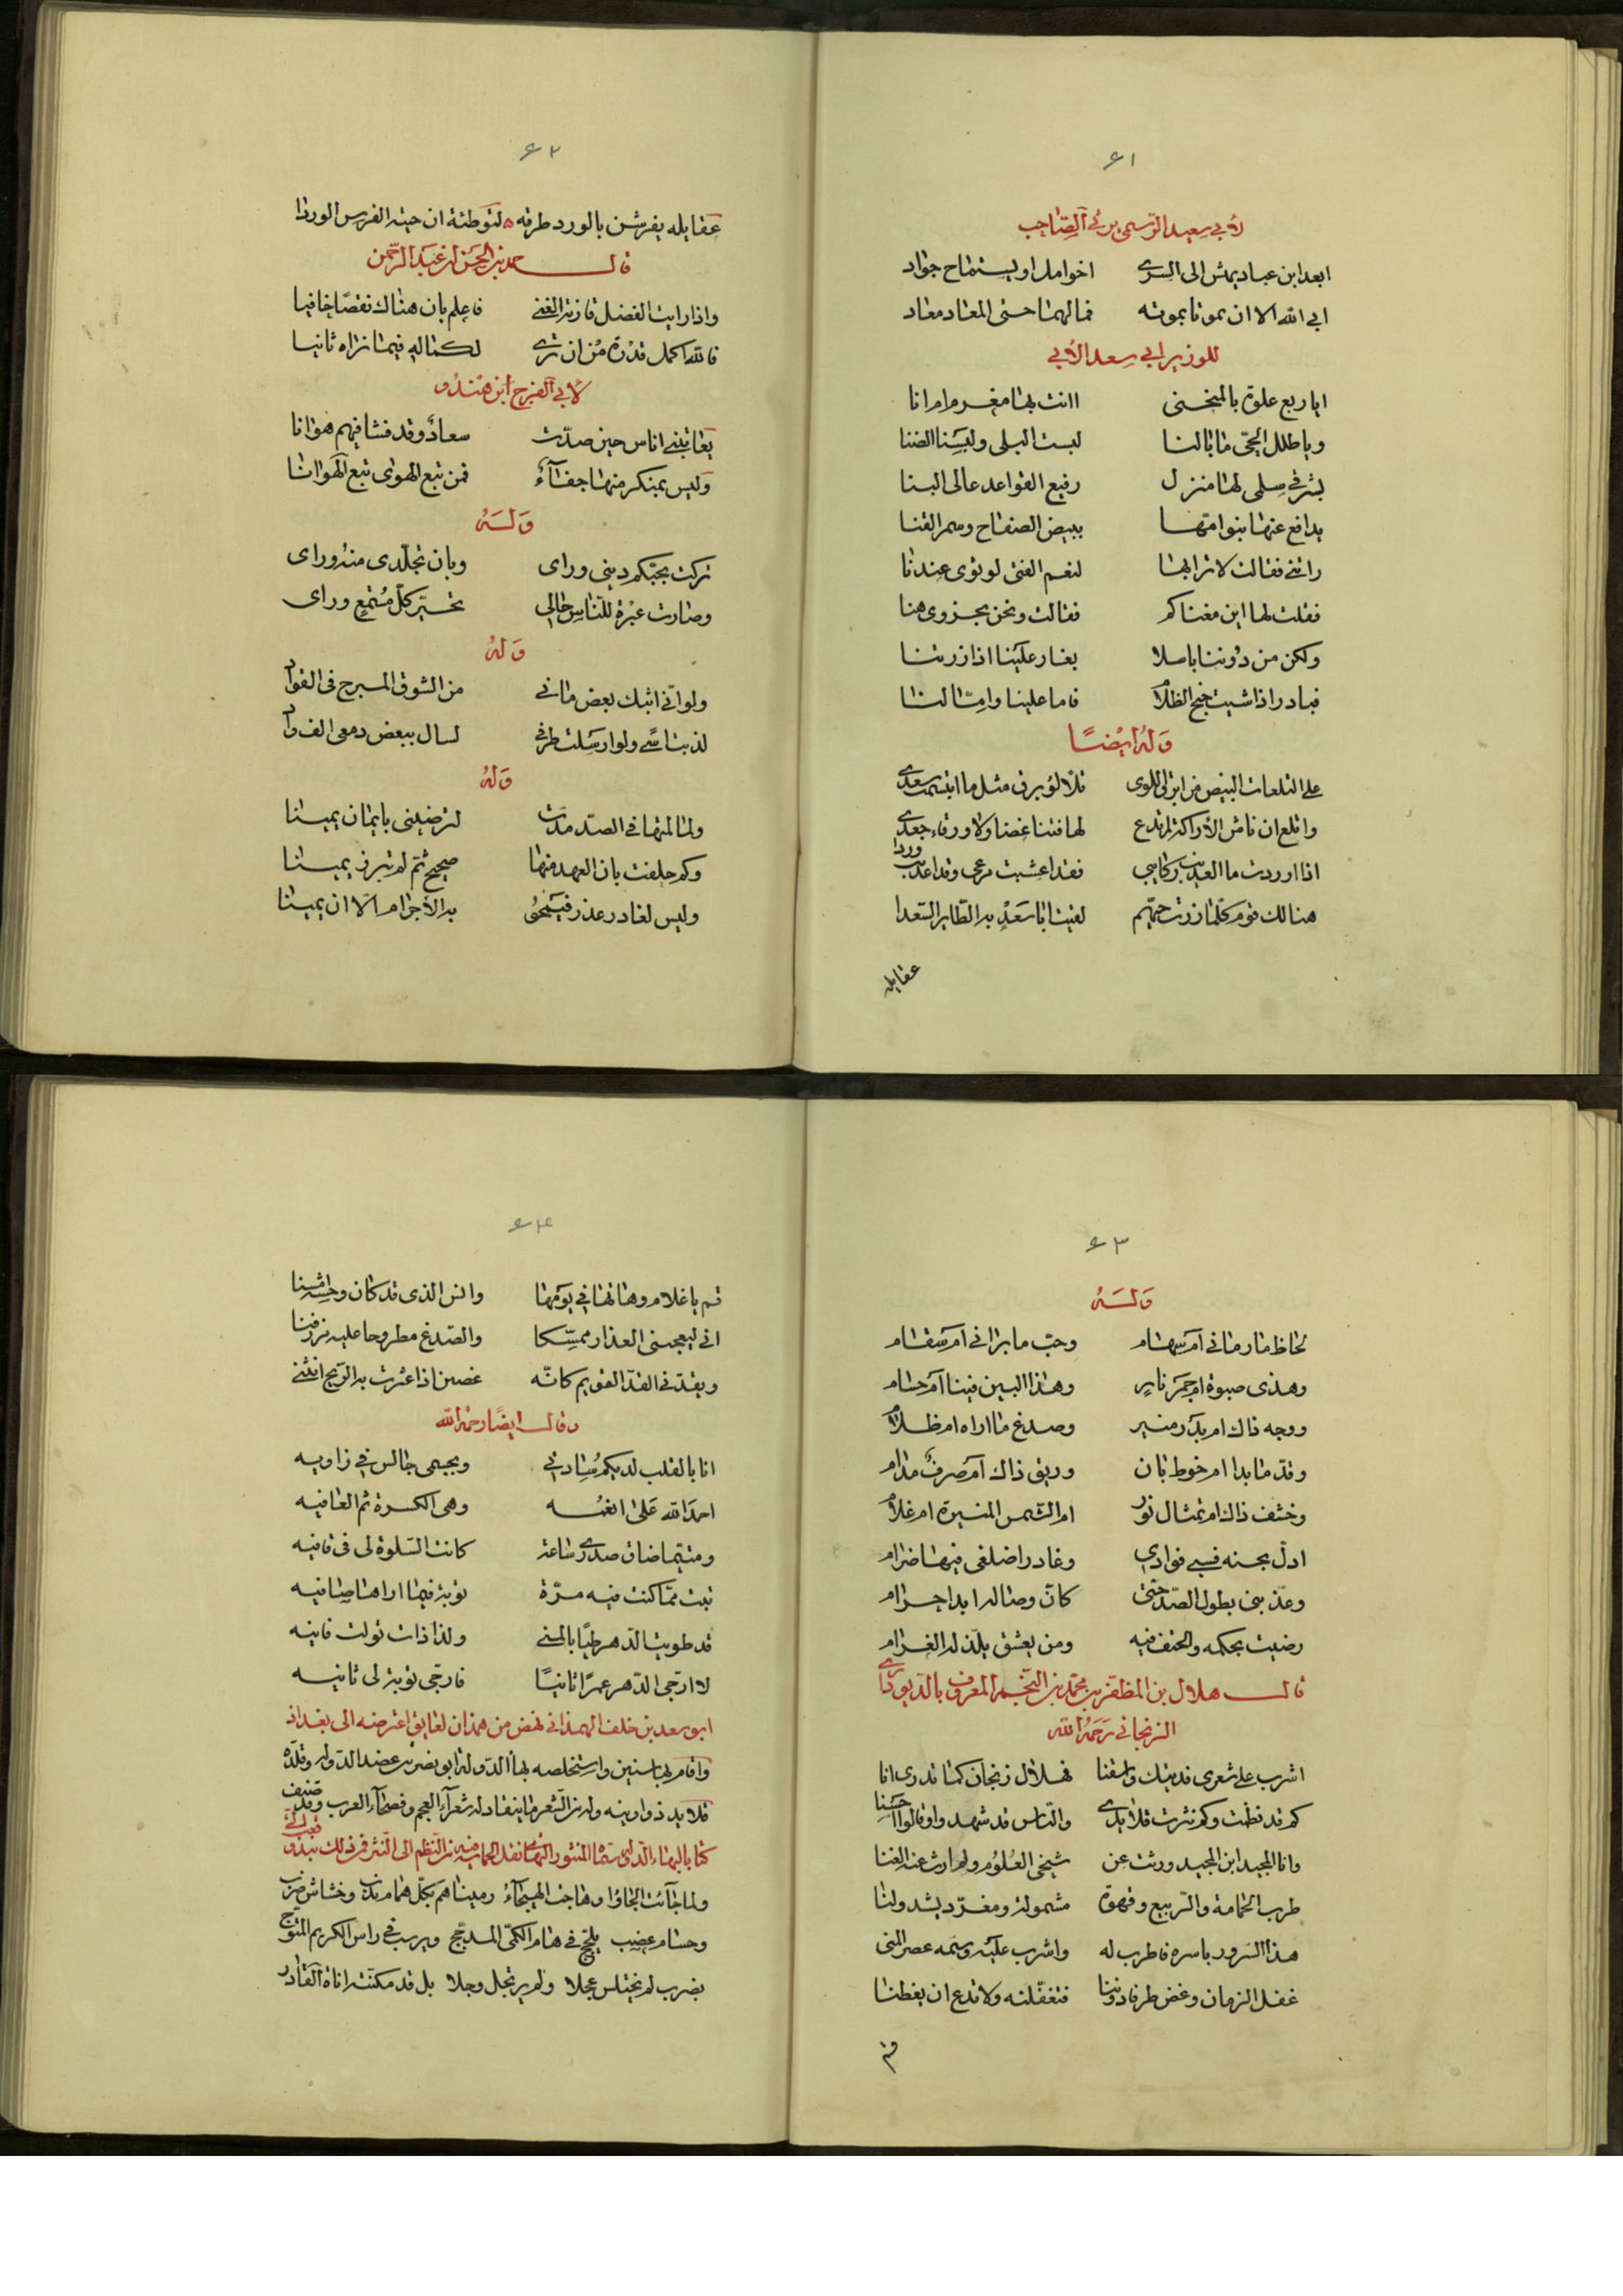 ٦١
لأبي سعيد الرستمى يرثي الصاحب
ابعد ابن عباد يهش الى السرى اخو امل او يستماح جواد
ابى الله الا ان يموتا بموته فما لهما حتى المعاد معاد
للوزير ابي سعد الآبي
ايا ربع علوة بالمنحنى اانت بها مغرم ام انا
ويا طلل الحى ما بالنا لبست البلى ولبسنا الضنا
بشرقي سلمى لها منزل رفيع القواعد عالى البنا
يدافع عنها بنوا امها ببيض الصفاح وسمر القنا
راتني فقالت لاترابها لنعم الفتى لو نوى عندنا
فقلت لها اين مغناكم فقالت ونحن بحزوى هنا
ولكن من دوننا باسلا يغار علينا اذا زرتنا
فبادر اذا شيت جنح الظلام فاما علينا واما لنا
وله ايضا
على التلعات البيض من ابرق اللوى تلألؤ برق مثل ما ابتسمت سعدى
واتلع ان ناش الأراكة لم تدع لها فننا غضا ولا ورقا جعدى
اذا اوردت ما العذيب ركايبي فقد اعشبت مرعى وقد اعذبت وردا
هنالك قوم كلما زرت حيهم لقيت ابا سعد به الطاير السعدا
عقايله
٦٢
عقايله يفرشن بالورد طرقه لتوطئة ان جيته الفرس الوردا
قال حمد بن الحسن بن عبد الرحمن
واذا رايت الفضل فاز به الغنى فاعلم بان هناك نقصا خافيا
فالله اكمل قدرة من ان ترى لكماله فيما تراه ثانيا
لأبي الفرج ابن هندو
يعاتبني اناس حين صدت سعاد وقد فشا فيهم هوانا
وليس بمنكر منها جفاء فمن تبع الهوى تبع الهوانا
وله
تركت بحبكم ديني وراى وبان تجلدى منه وراى
وصارت عبرة للناس حالي تحير كل مستمع وراى
وله
ولو انى ابثك بعض ما بي من الشوق المبرح فى الفواد
لذبت اسى ولو ارسلت طرفي لسال ببعض دمعى الف واد
وله
ولما لمتها في الصد مدت لترضينى بايمان يمينا
وكم حلفت بان العهد منها صحيح ثم لم تبرر يمينا
وليس لغادر عذر فينحو به الأجرام الا ان يمينا
٦٣
وله
لحاظ ما رمانى ام سهام وحب ما برانى ام سقام
وهذى صبوة ام جمر نار وهذا البين فينا ام حسام
ووجه ذاك ام بدر منير وصدغ ما اراه ام ظلام
وقد ما بدا ام خوط بان وريق ذاك ام صرف مدام
وخشف ذاك ام تمثال نور ام الشمس المنيرة ام غلام
ادل بحسنه فسبى فوادي وغادر اضلعى فيها ضرام
وعذبنى بطول الصد حتى كان وصاله ابدا حرام
رضيت بحكمه والحتف فيه ومن يعشق يلذ له الغرام
قال هلال بن المظفر بن محمد بن النجم المعروف بالديوداري
الزنجاني رحمه الله
اشرب على شعرى فديتك واسقنا فهلال زنجان كما تدرى انا
كم قد نظمت وكم نثرت قلايدى والناس قد شهدوا وقالوا احسنا
وانا المجيد ابن المجيد ورثت عن شيخى العلوم ولم ارث عنه الغنا
طرب الحمامة والربيع وقهوة مشمولة ومغرد يشدو لنا
هذا السرور باسره فاطرب له واشرب عليه وسمه عصر المنى
غفل الزمان وغض طرفا دوننا فتغفلنه ولا تدع ان يفطنا
قم
٦٤
قم يا غلام وهاتها في يومها وانس الذى قد كان وحشه امسنا
انى ليعجبنى العذار ممسكا والصدغ مطروحا عليه مزرفنا
ويقدنى القد القويم كانه غصن اذا عثرت به الريح انثنى
وقال ايضا رحمه الله
انا بالقلب لديكم سادتى وبجسمى جالس في زاويه
احمد الله على انعمه وهى الكسرة ثم العافيه
ومتى ما ضاق صدرى ساعة كانت السلوة لى فى قافيه
تبت مما كنت فيه مرة توبة فيما اراها صافيه
قد طويت الدهر طيا بالمنى ولذاذات تولت فانيه
لا ارجى الدهر عمرا ثانيا فارجى توبة لى ثانيه
ابو سعد بن خلف الهمذاني نهض من همذان لعايق اعترضه الى بغداد
واقام بها سنين واستخلصه بهاء الدولة ابو نصر بن عضد الدوله وقلده
قلايد دواوينه وله من الشعر ما ينقاد له شعراء العجم وفصحاء العرب وقد صنف
كتابا لبهاء الدوله سماه المنثور البهائى نقل الحماسة فيه من النظم الى النثر فمن ذلك نبذة
ولما جآئت الجاؤا وهاجت الهيجاء رميناهم بكل همام ندب وخشاش ضرب
وحسام عضب يلج في هام الكمى المدجج ويرسب في راس الكريم المتوج
بضرب لم يختلس عجلا ولم يرتجل وجلا بل قد مكنته اناة القادر